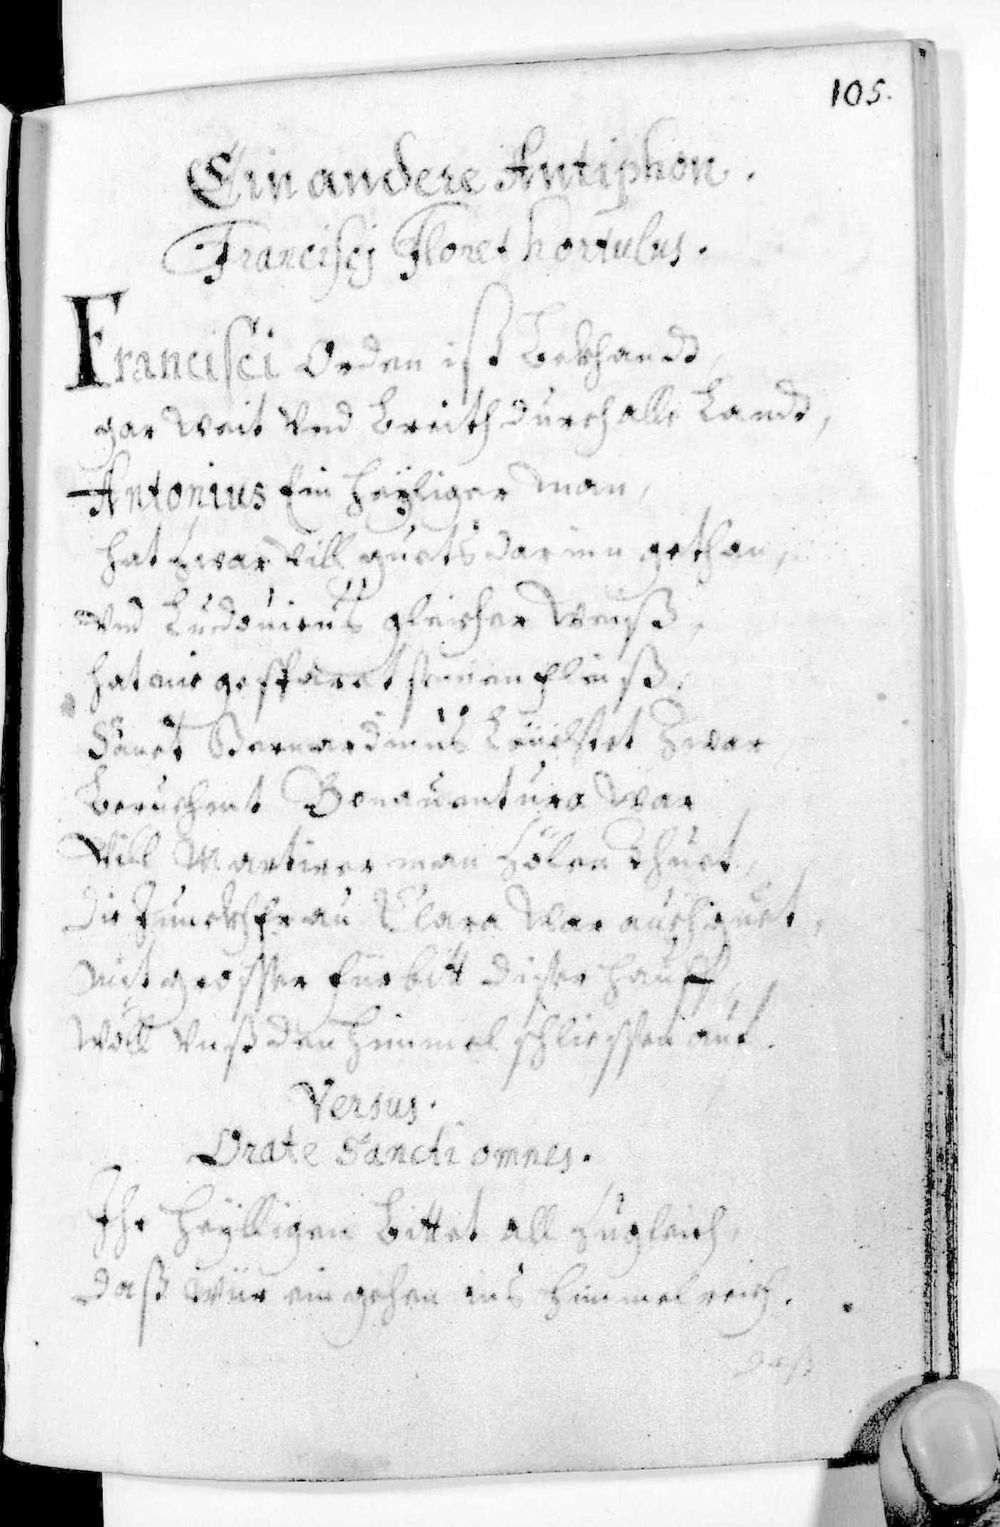 105.
Ein andere Antiphon.
Francisci Floret hortulus.
Francisci Orden ist bekhandt,
gar weit Vnd breith durch alle Landt,
Antonius Ein heÿliger man,
hat zwar Vill guets darinn gethan,
Vnd Ludouicus gleicher Weiß,
hat nie gesparet seinen fleiß,
Sanct Bernardinus leüchtet zwar
Bonauentura war
Vill Martirer man zölen thuet,
Die Junckhfrau Clara war auch guet,
mit grosser fürbitt diser hauff,
wöll Vnß den himmel schliessen auf.
Versus.
Orate Sancti omnes.
Ihr heÿlligen bittet all zugleich,
Daß wür eingehen ins himmelreich.